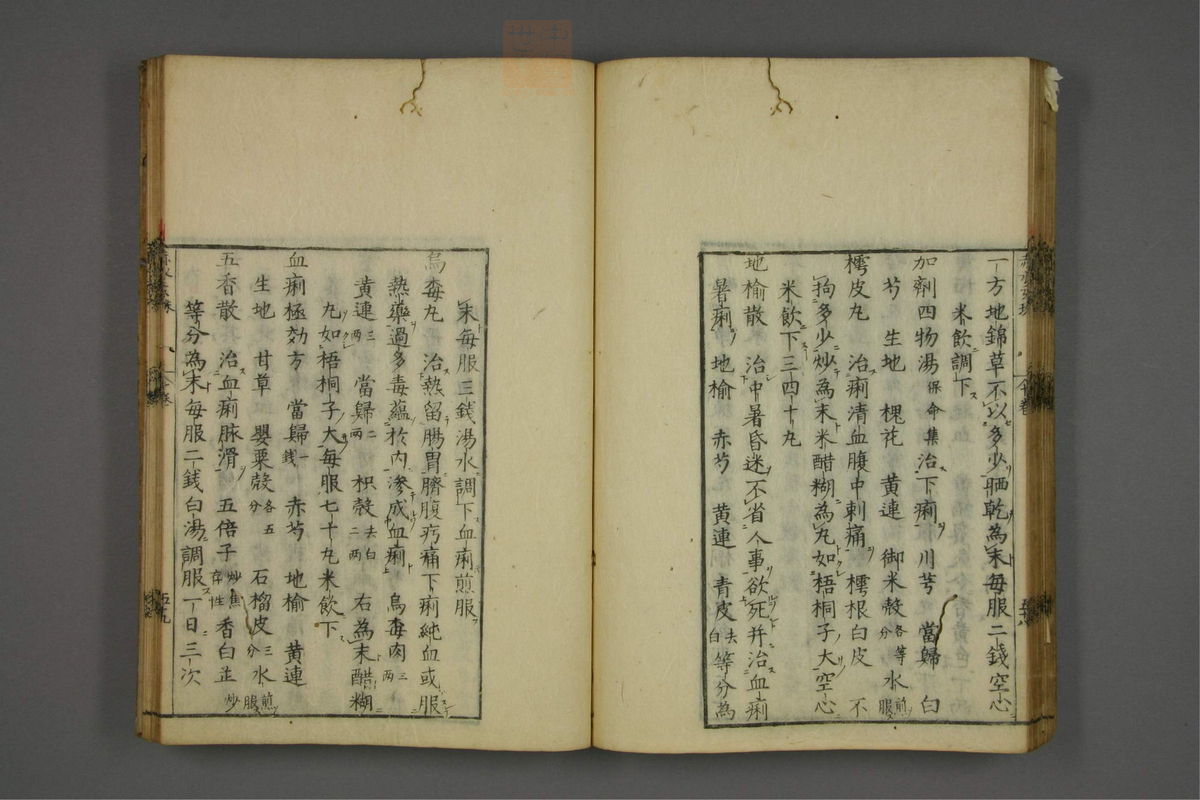 一方地錦草不以多少晒乾為末毎服二銭空心
米飲調下
加劑四物湯保命集治下痢川芎 當歸 白
芍 生地 槐花 黄連 御米殻各等分水煎服
樗皮丸 治痢清血腹中刺痛 樗根白皮 不
拘多少炒為末米醋糊為丸如梧桐子大空心
米飲下三四十丸
地榆散 治中暑昏迷不省人事欲死并治血痢
暑痢 地榆 赤芍 黄連 青皮去白等分為
末毎服三銭湯水調下血痢煎服
烏毎丸 治熱留腸胃臍腹㽲痛下痢純血或服
熱藥過多毒蘊於内滲成血痢 烏毎肉三两
黄連三两 當歸二两 枳殻去白二两 右為末醋糊
丸如梧桐子大毎服七十丸米飲下
血痢極効方 當歸一銭 赤芍 地榆 黄連
生地 甘草 嬰粟殻各五分 石榴皮三分水煎服
五香散 治血痢脉滑 五倍子炒焦存性香白芷炒
等分為末毎服二銭白湯調服一日三次
五十九